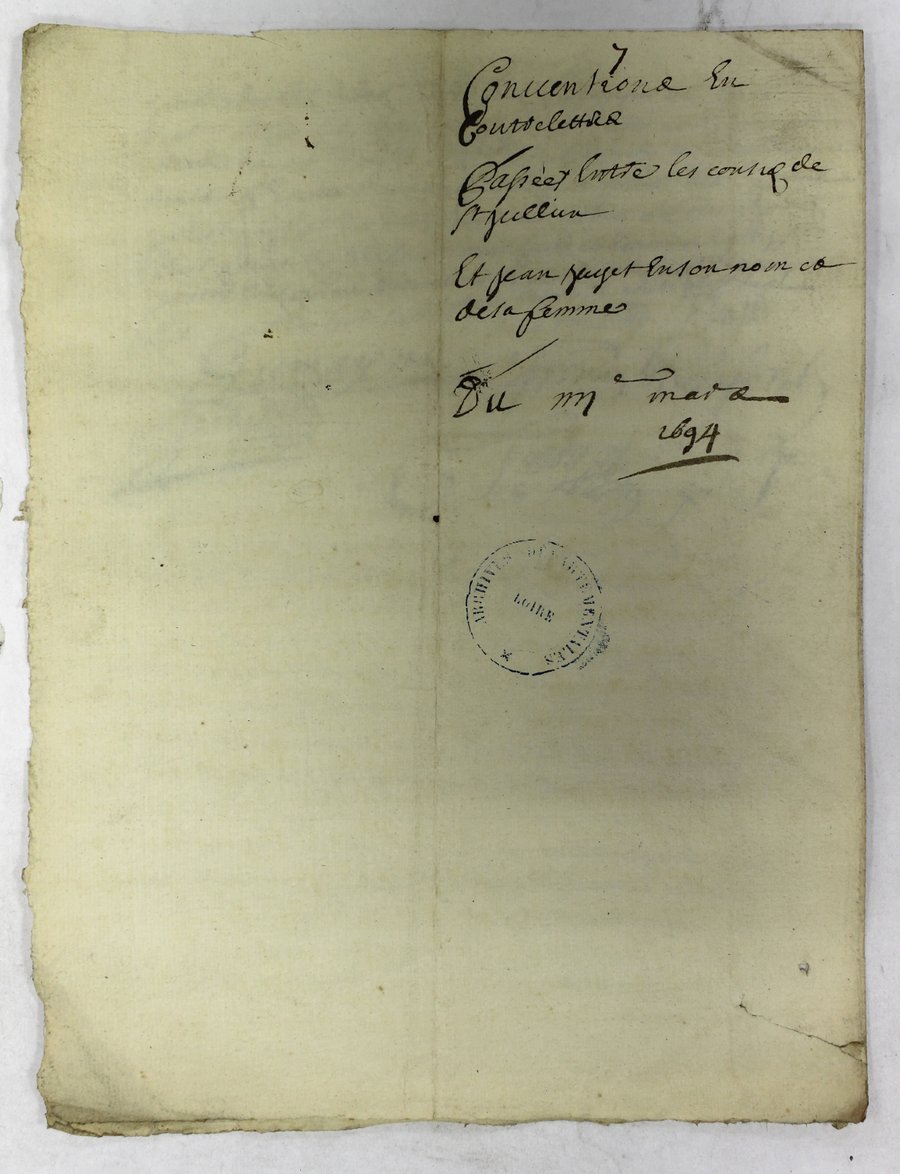 7
Conuentions En
Contrelettres
Passées Entre les consuls de
St Jullien
Et Jean En son nom et
de sa femme
Du iiij e mars
1694
ARCHIVES DÉPARTEMENTALES
LOIRE